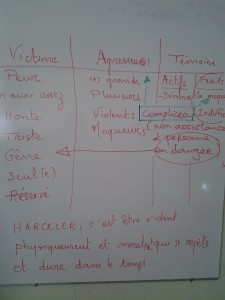 Victime Agresseurs Témoins
Peur (+) grands Actifs Passifs
en avoir assez Plusieurs
Honte Violents Complices Indiff
Triste Moqueurs non assistance
Gêne à personne
Seul(e) en danger
Réservé
HARCELER, c'est être violent
physiquement et moralement
et dure dans le temps